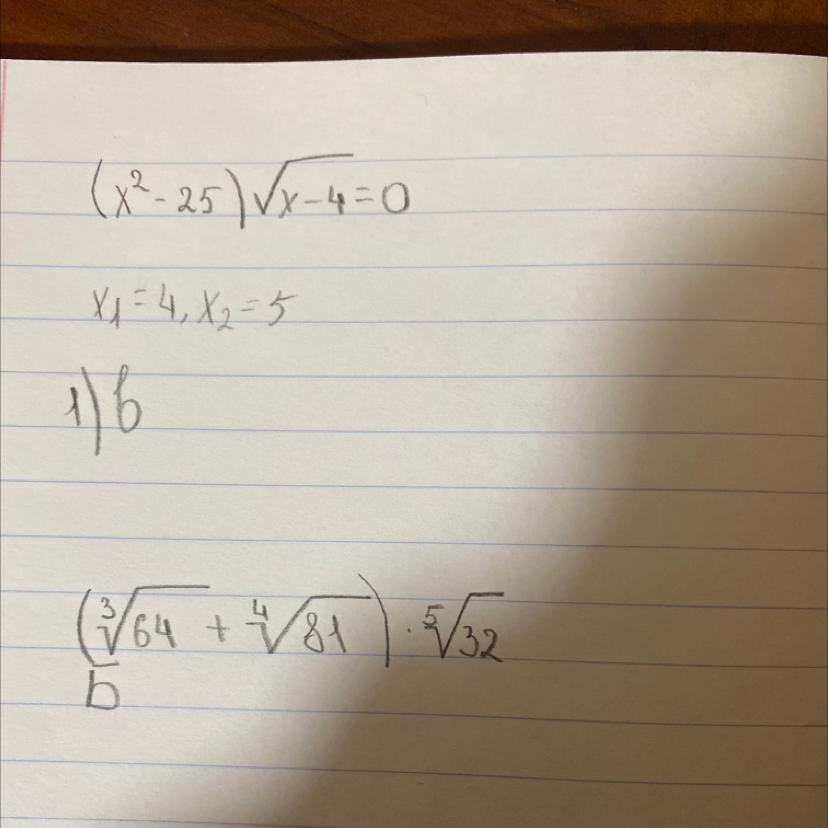 (x² - 25)√(x-4) = 0
x₁ = 4, x₂ = 5
1) в
(∛64 + ∜81) · ⁵√32
Б